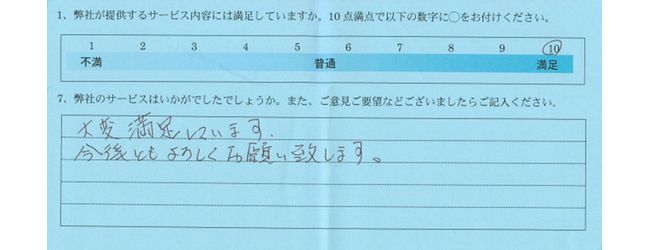 1，弊社が提供するサービス内容には満足していますか。10点満点で以下の数字に○をお付けください。
1 2 3 4 5 6 7 8 9 10
不満 普通 満足
7，弊社のサービスはいかがでしたでしょうか。また、ご意見ご要望などございましたらご記入ください。
大変満足しています．
今後ともよろしくお願い致します。